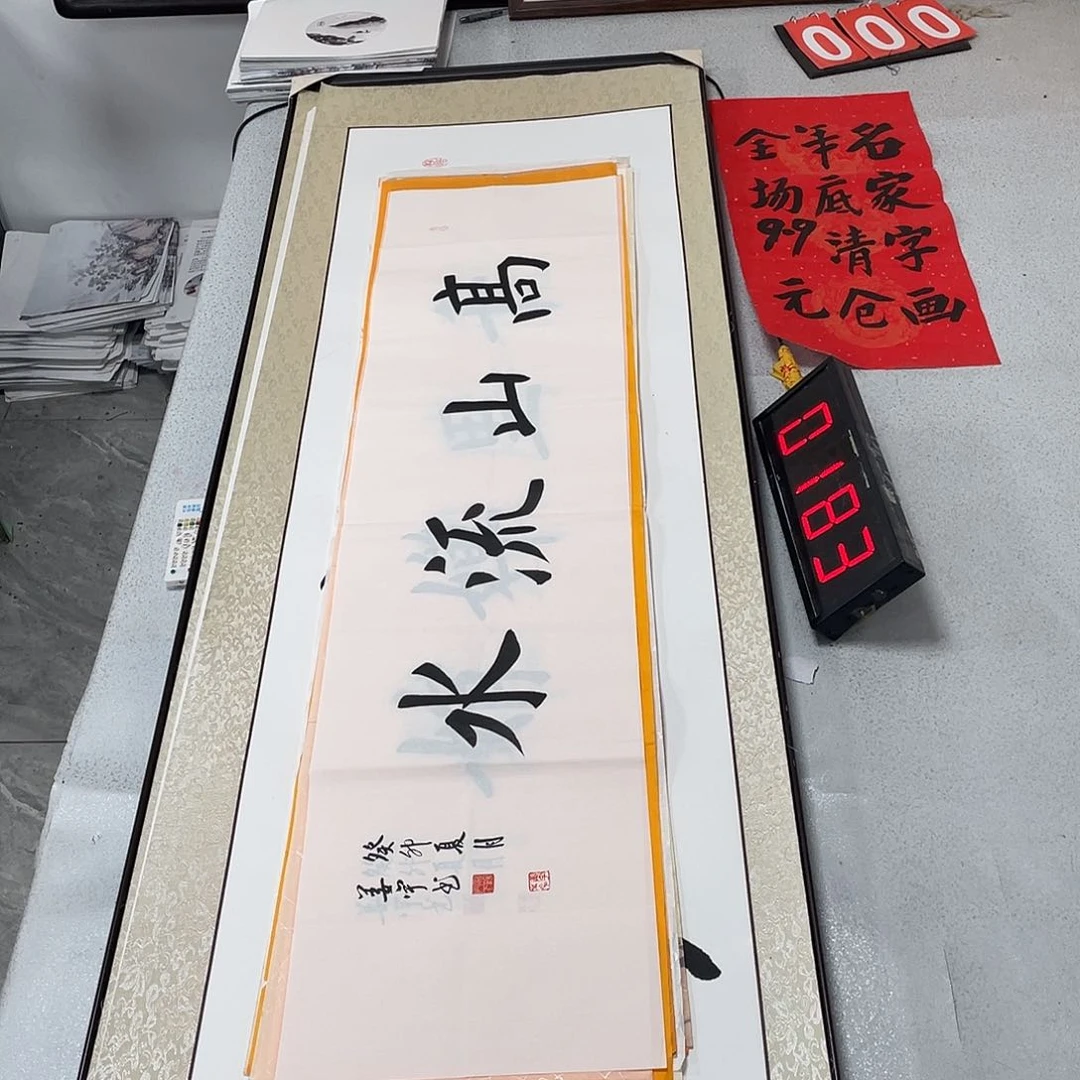 000
名家字画
年底清仓
全场9.9元
0183
高山流水
癸卯夏月
善宇书